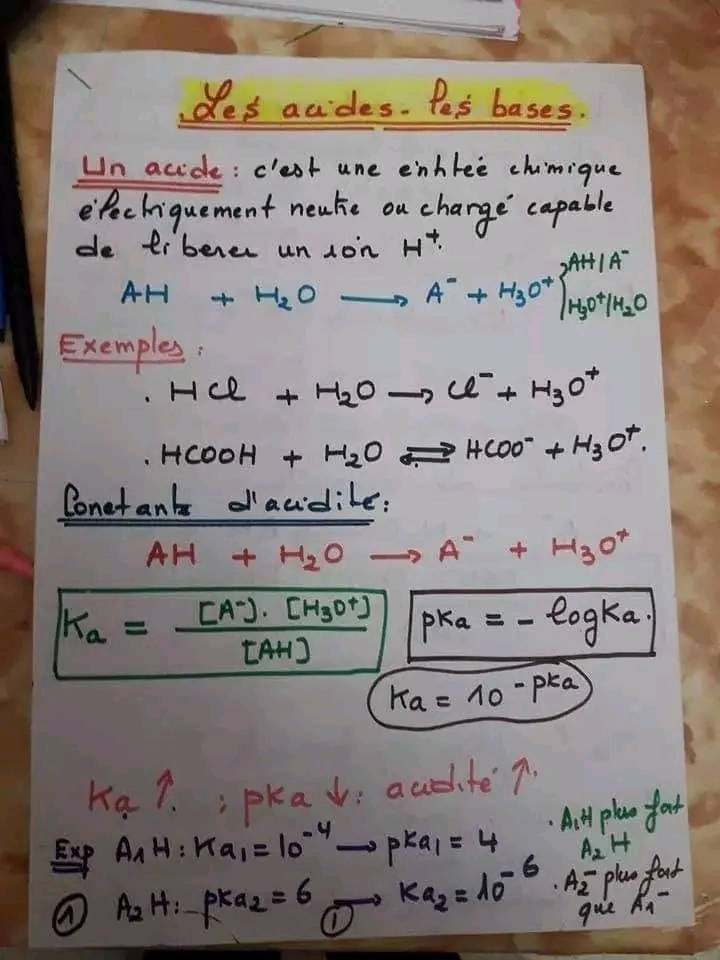 Les acides - les bases.
Un acide : c'est une entité chimique
électriquement neutre ou chargé capable
de liberer un ion H⁺.
AH + H₂O → A⁻ + H₃O⁺ { AH/A⁻
H₃O⁺/H₂O
Exemples :
. HCl + H₂O → Cl⁻ + H₃O⁺
. HCOOH + H₂O ⇌ HCOO⁻ + H₃O⁺.
Constante d'acidité :
AH + H₂O → A⁻ + H₃O⁺
Ka = [A⁻]. [H₃O⁺] / [AH]
pKa = - logKa.
Ka = 10^-pKa
Ka ↑. ; pKa ↓ : acidité ↑.
Exp A₁H : Ka₁ = 10⁻⁴ → pKa₁ = 4
. A₁H plus fort
A₂H
① A₂H : pKa₂ = 6 → Ka₂ = 10⁻⁶
①
. A₂⁻ plus fort
que A₁⁻